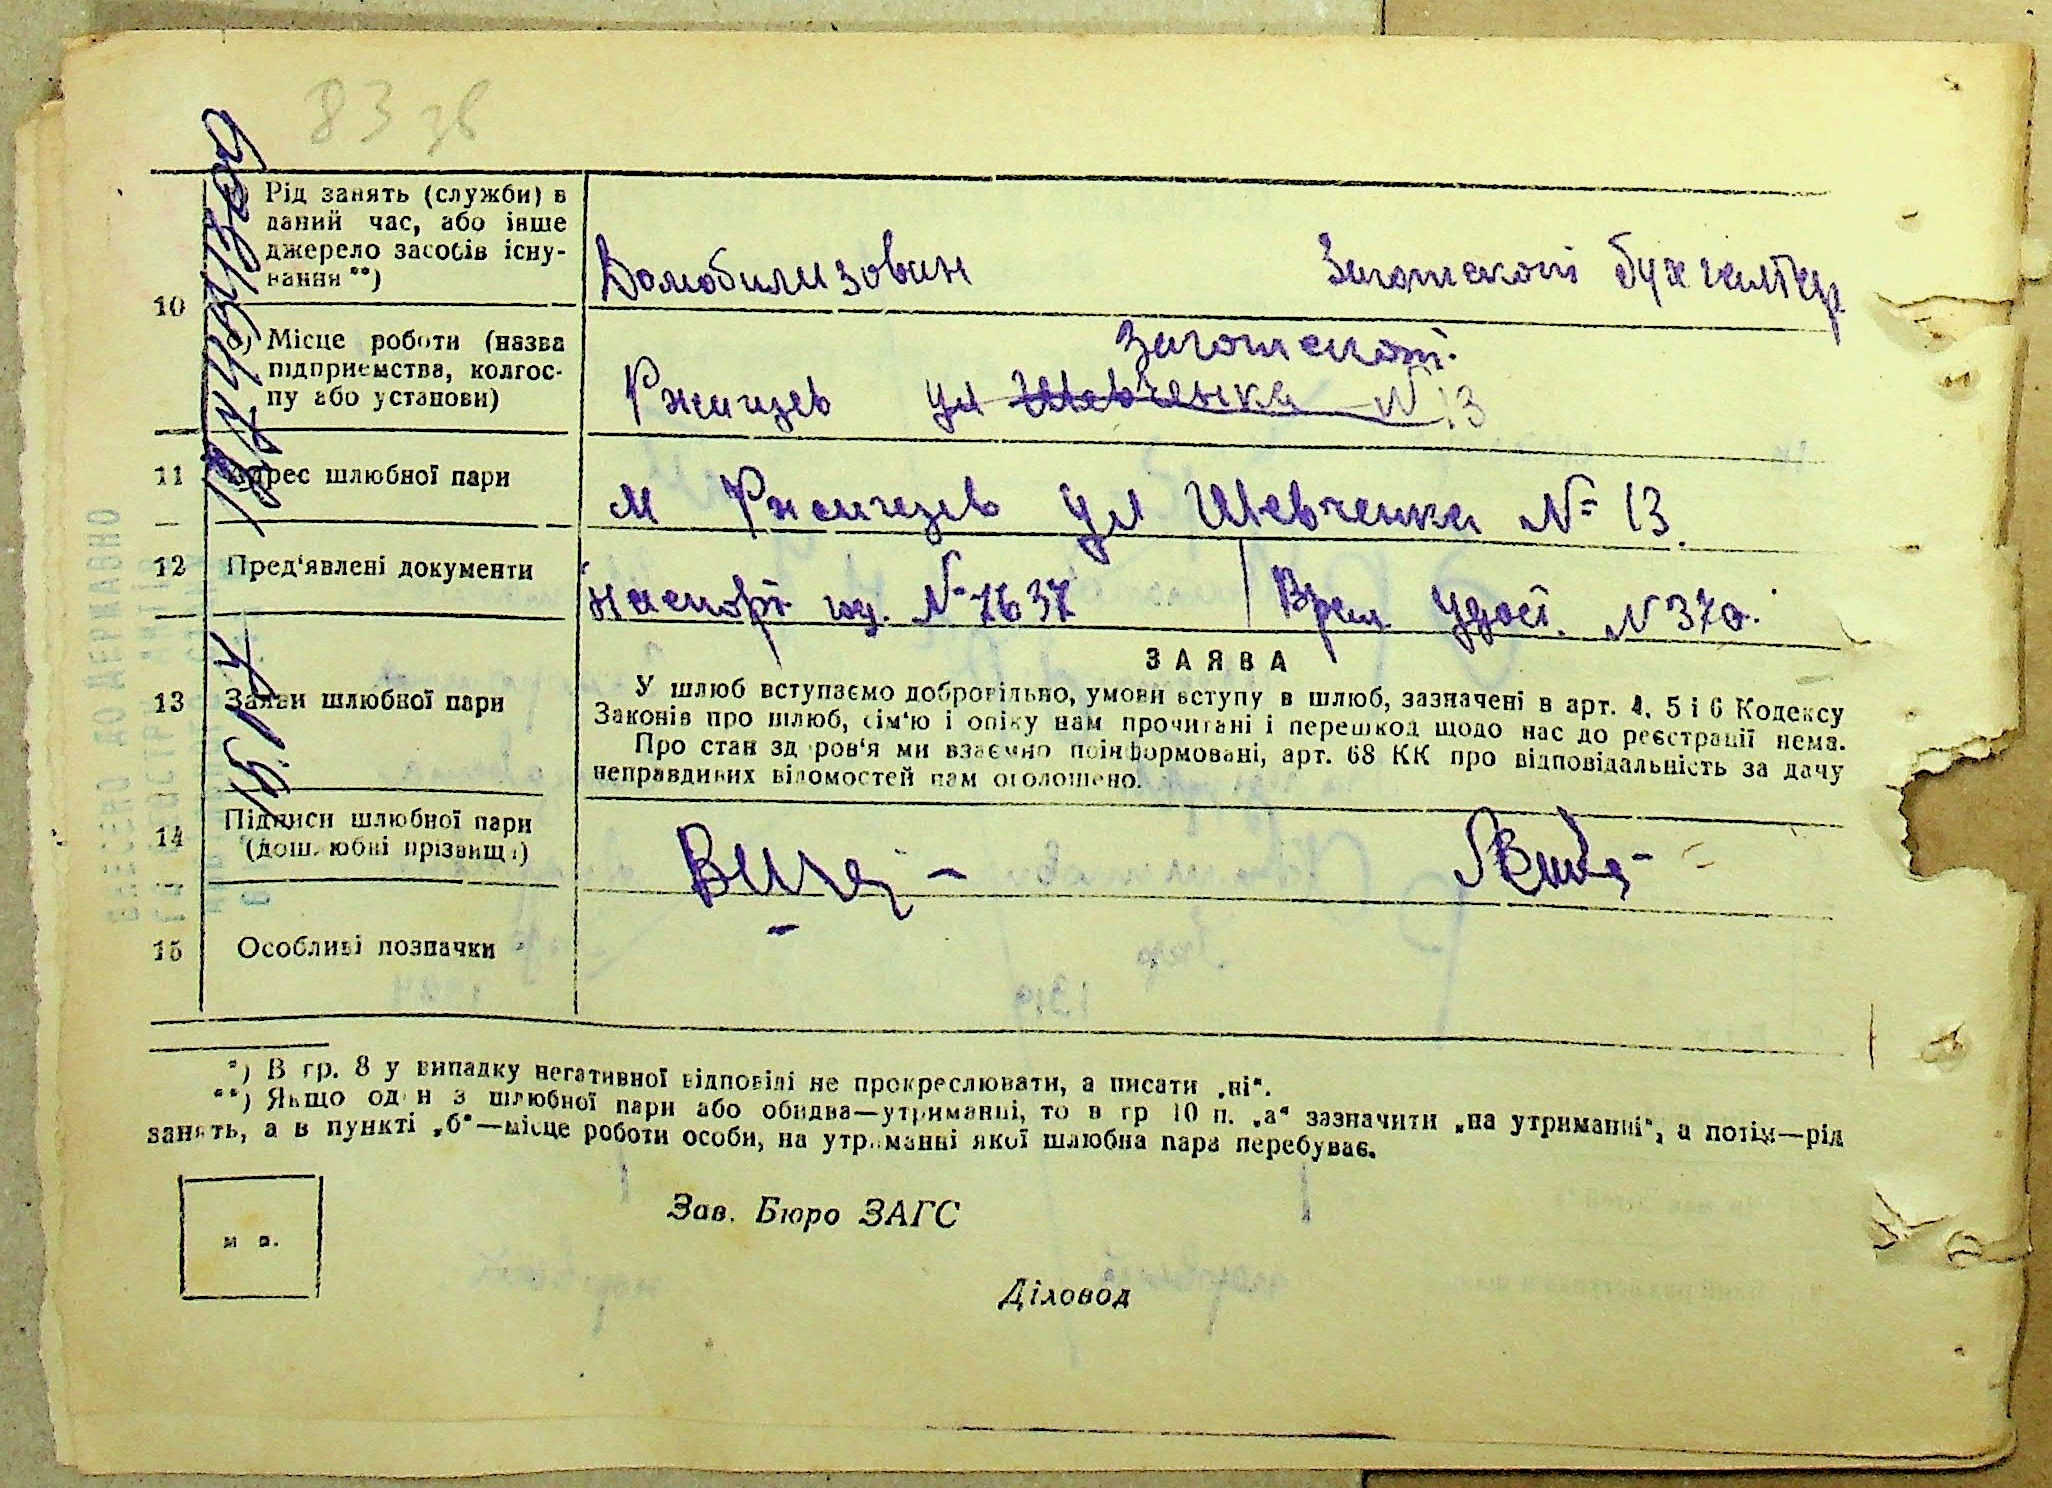 83 зв
10
Рід занять (служби) в
даний час, або інше
джерело засобів існу-
вання **)
Домобилизован
Заготскот бухгалтер
б) Місце роботи (назва
підприємства, колгос-
пу або установи)
Заготскот.
Ржищев ул Шевченка № 13
11
Адрес шлюбної пари
м Ржищев ул Шевченка № 13.
12
Пред'явлені документи
паспорт № 7637
Врем. удост. № 370.
13
Заяви шлюбної пари
ЗАЯВА
У шлюб вступаємо добровільно, умови вступу в шлюб, зазначені в арт. 4, 5 і 6 Кодексу
Законів про шлюб, сім'ю і опіку нам прочитані і перешкод щодо нас до реєстрації нема.
Про стан здоров'я ми взаємно поінформовані, арт. 68 КК про відповідальність за дачу
неправдивих відомостей нам оголошено.
14
Підписи шлюбної пари
(дошлюбні прізвища)
15
Особливі позначки
*) В гр. 8 у випадку негативної відповіді не прокреслювати, а писати „ні“.
**) Якщо один з шлюбної пари або обидва—утриманці, то в гр 10 п. „а“ зазначити „на утриманні“, а потім—рід
занять, а в пункті „б“—місце роботи особи, на утриманні якої шлюбна пара перебуває.
м п.
Зав. Бюро ЗАГС
Діловод
ВНЕСЕНО ДО ДЕРЖАВНО